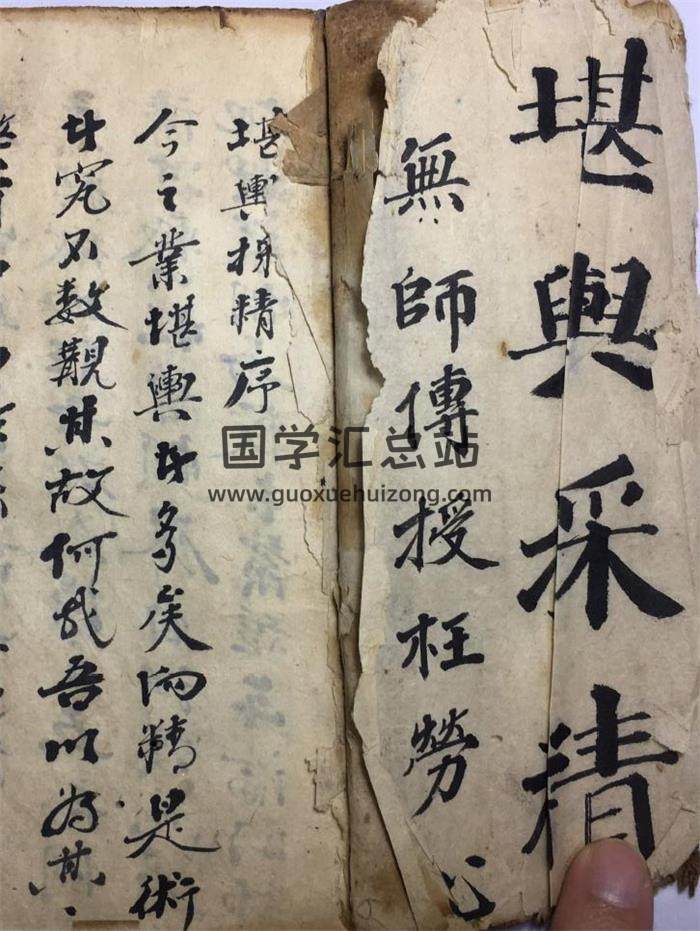 堪輿采精
無師傳授枉勞心
堪輿採精序
今之業堪輿者多矣向精是術
者究不数觀其故何哉吾以為其
国学汇总站
www.guoxuehuizong.com